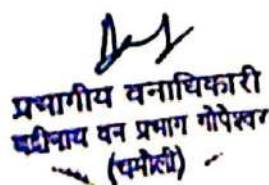 प्रभागीय वनाधिकारी
बद्रीनाथ वन प्रभाग गोपेश्वर
(चमोली)